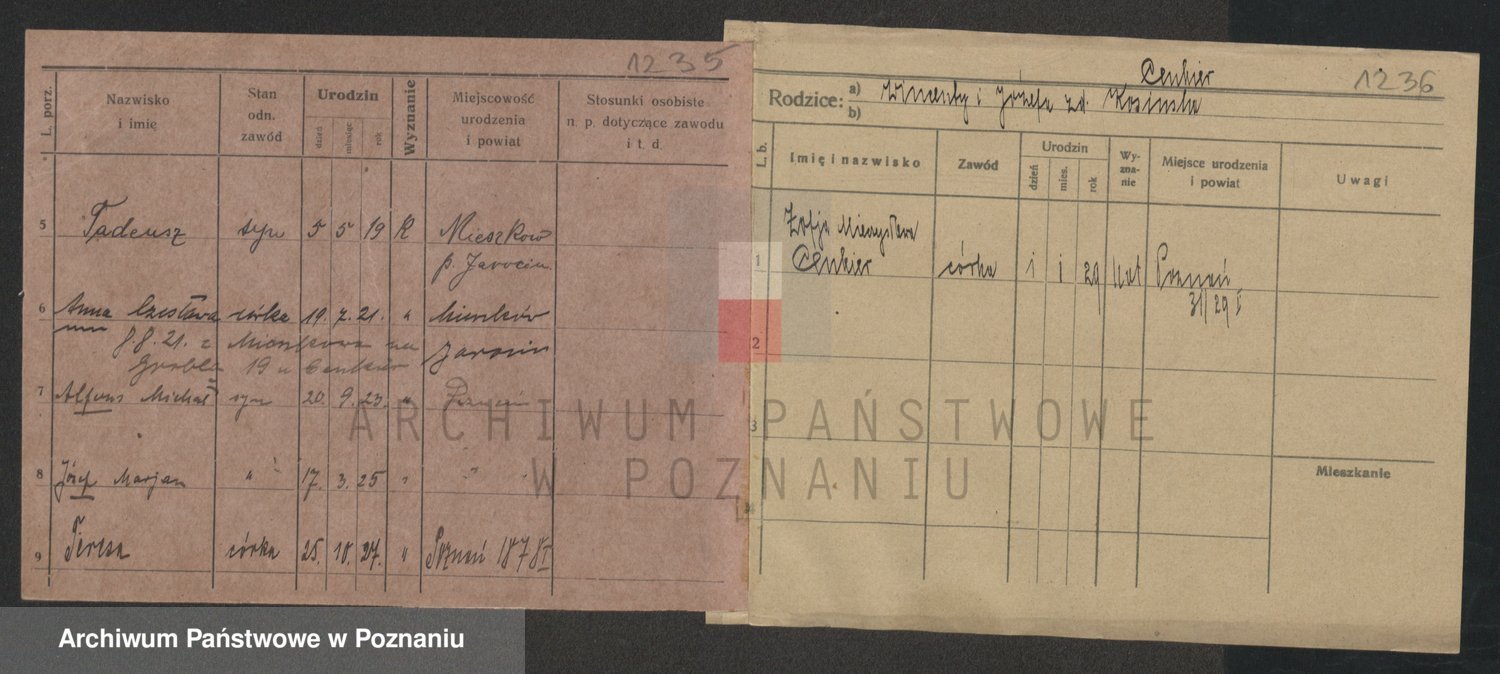 1235
L. porz.
Nazwisko
i imię
Stan
odn.
zawód
Urodzin
dzień
miesiąc
rok
Wyznanie
Miejscowość
urodzenia
i powiat
Stosunki osobiste
n. p. dotyczące zawodu
i t. d.
5 Tadeusz syn 5 5 19 K Mieszków
p. Jarocin
6 Anna Czesława córka 19. 7. 21. " Mieszków
8.8.21. z Mieszkowa na Jarocin
Grobla 19 u Cenkier
7 Alfons Michał syn 20. 9. 23. " Poznań
8 Józef Marjan " 17. 3. 25 " " "
9 Teresa córka 25. 10. 27. " Poznań
1236
Cenkier
Rodzice: a) Wincenty i Józefa zd. Kosińska
b)
L. b.
Imię i nazwisko
Zawód
Urodzin
dzień
mies.
rok
Wy-
zna-
nie
Miejsce urodzenia
i powiat
Uwagi
Zofja Mieczysława
1 Cenkier córka 1 1 29 kat Poznań
31/1 29
2
3
4
Mieszkanie
ARCHIWUM PAŃSTWOWE
W POZNANIU
Archiwum Państwowe w Poznaniu